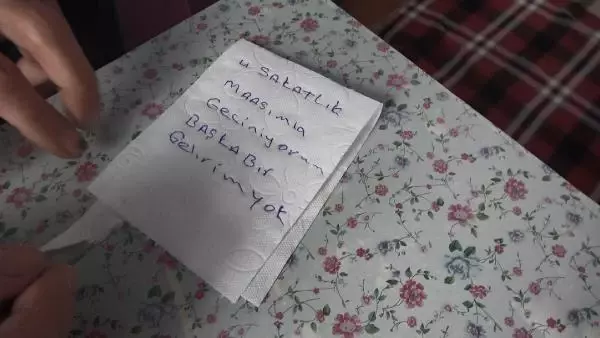 4 SAKATLIK
MAAŞIMLA
Geçiniyorum
BAŞKA Bir
Gelirim Yok